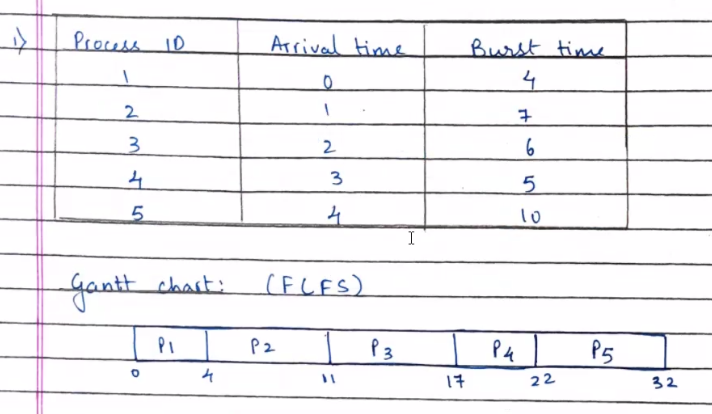 1) Process ID Arrival time Burst time
1 0 4
2 1 7
3 2 6
4 3 5
5 4 10
Gantt chart: (FCFS)
P1 P2 P3 P4 P5
0 4 11 17 22 32